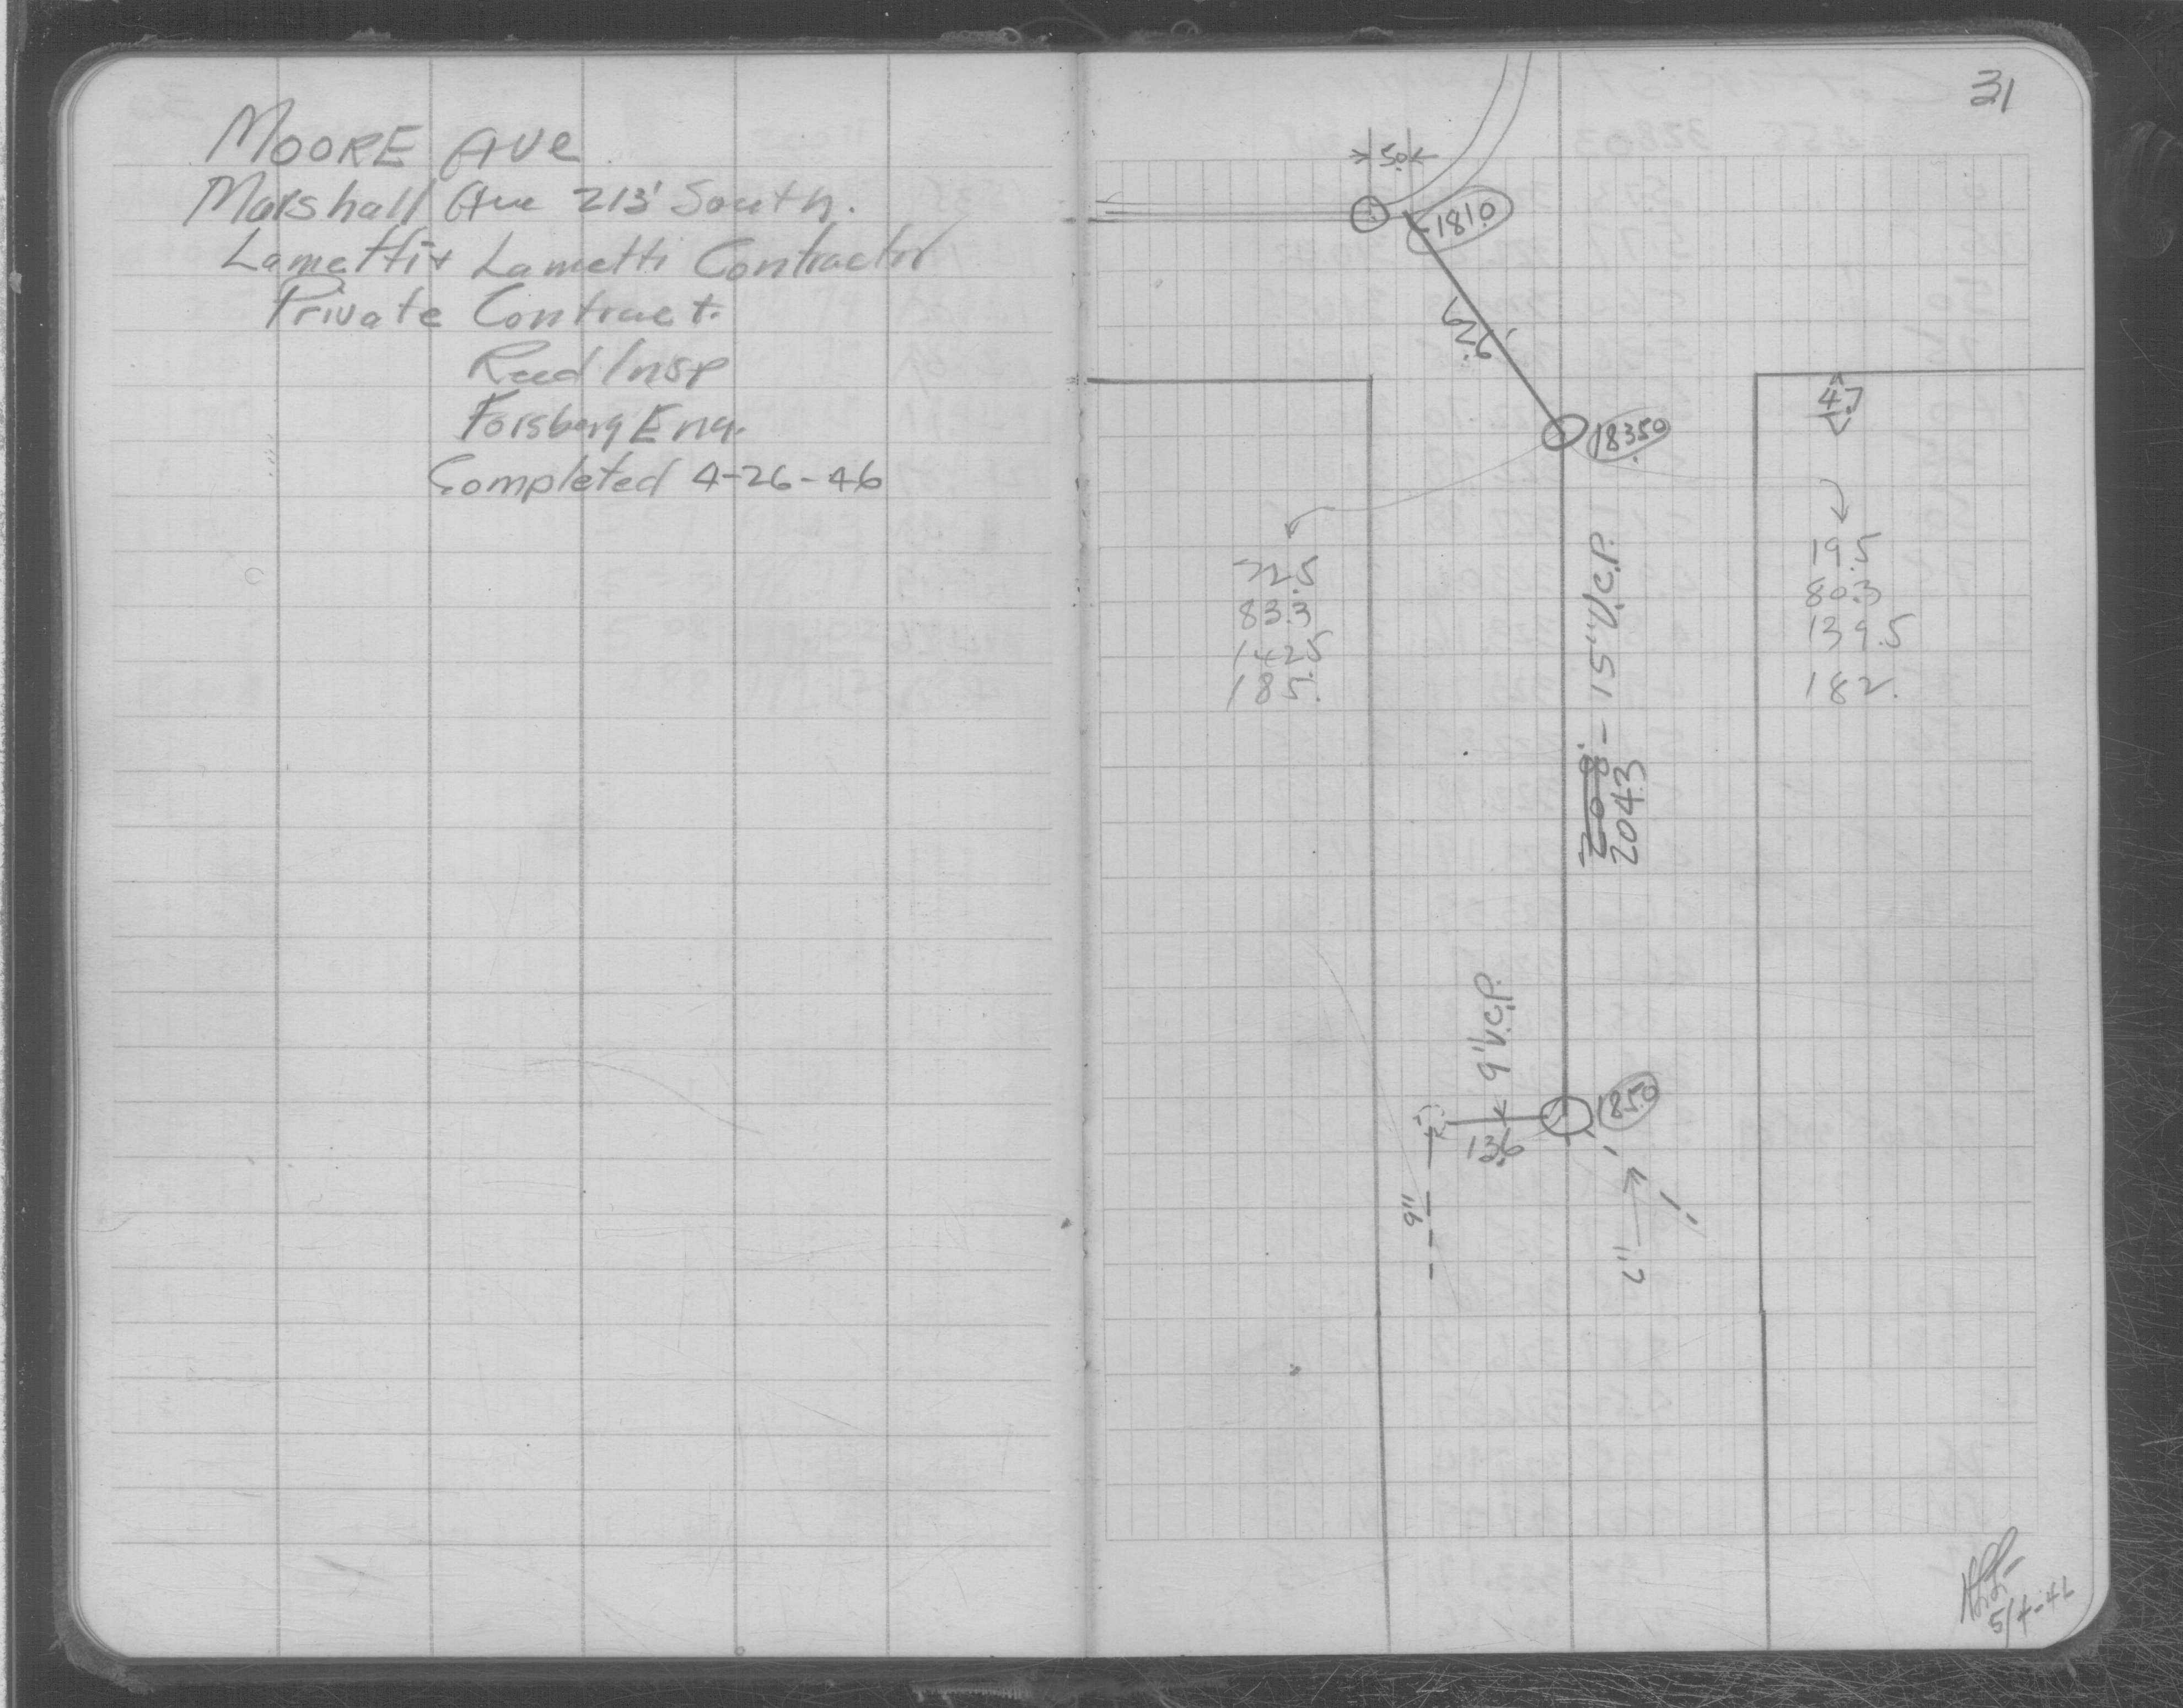 MOORE AVE
Marshall Ave 213' South.
Lametti + Lametti Contractor
Private Contract.
Reed Insp
Forsberg Eng.
Completed 4-26-46
31
5.0
181.0
62.6'
183.50
4.7
83.3
142.5
19.5
80.3
139.5
182.
15" V.C.P.
208'
204.3
9" V.C.P.
13.6
185.0
9"
6"